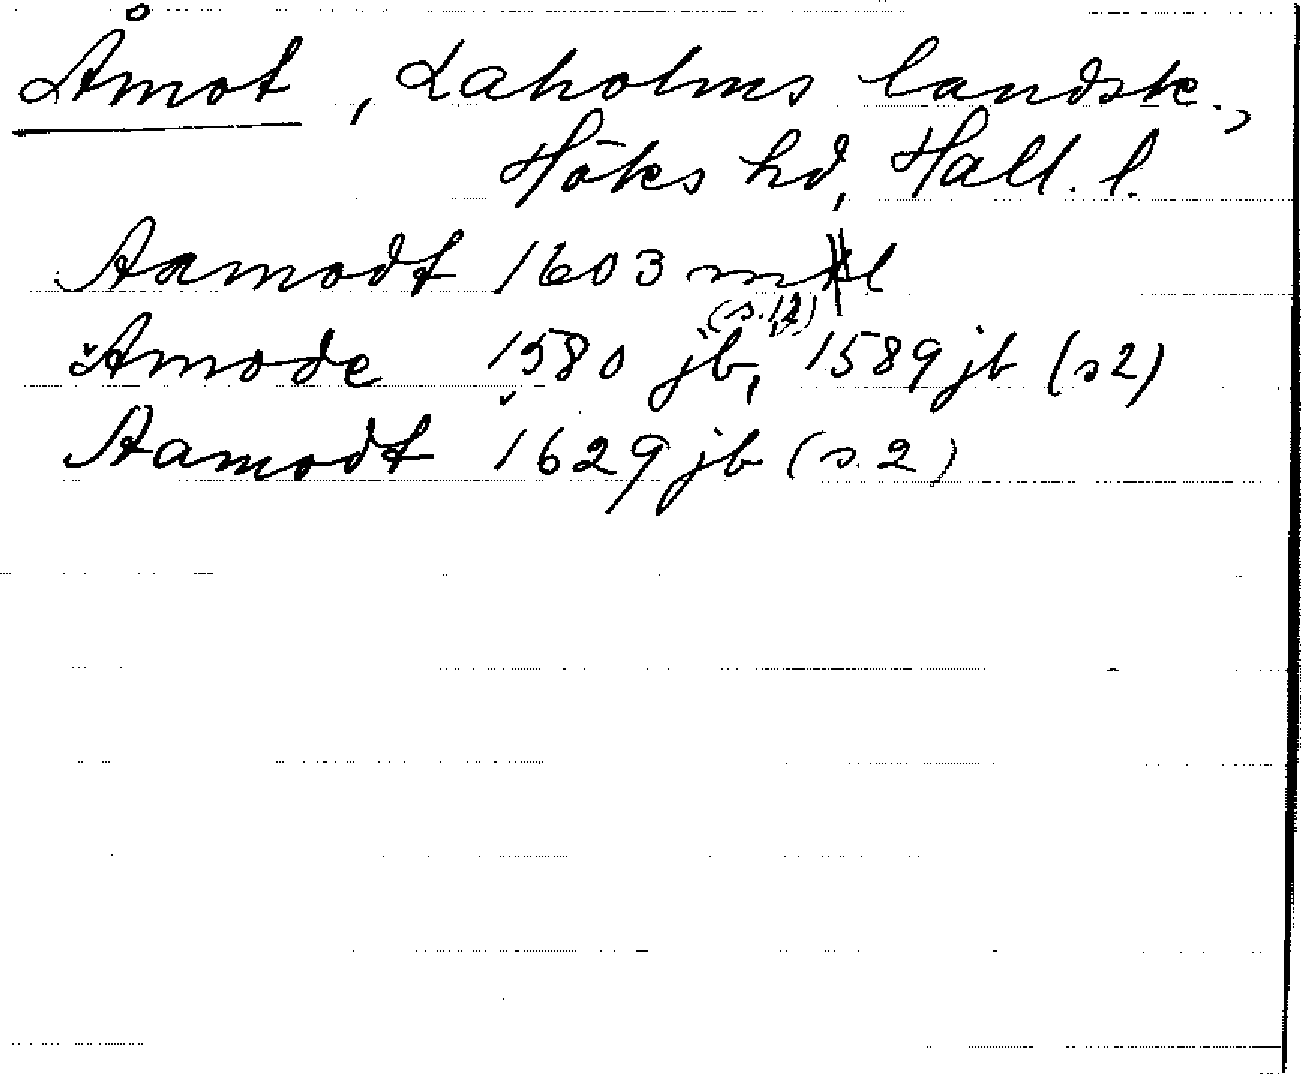 Åmot, Laholms landsk.,
Höks hd, Hall. l.
Aamodt 1603 mtl
(s. 12)
Amode 1580 jb, 1589 jb (s 2)
Aamodt 1629 jb (s. 2)